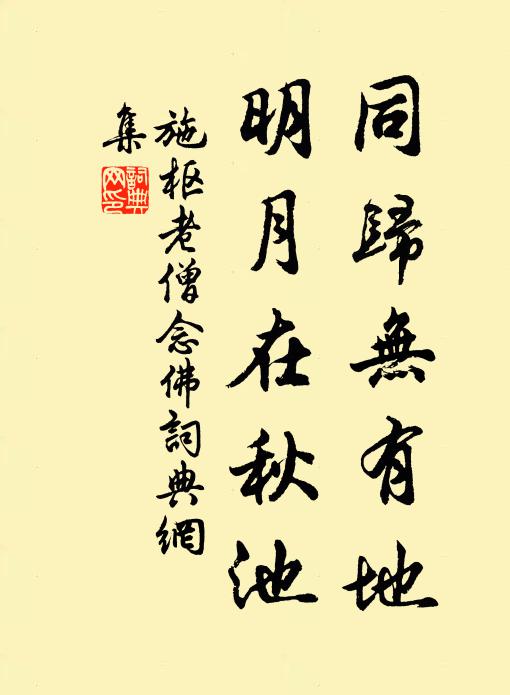 同歸無有地
明月在秋池
施枢老僧念佛詞典網
集
詞典
网印